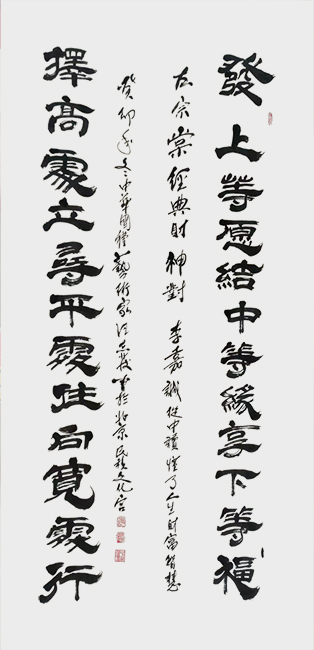 發上等愿結中等緣享下等福
左宗棠經典財神對 李嘉誠從中讀懂了人生財富智慧
癸卯年冬中華國禮藝術家書於北京民族文化宮
擇高處立尋平處住向寬處行